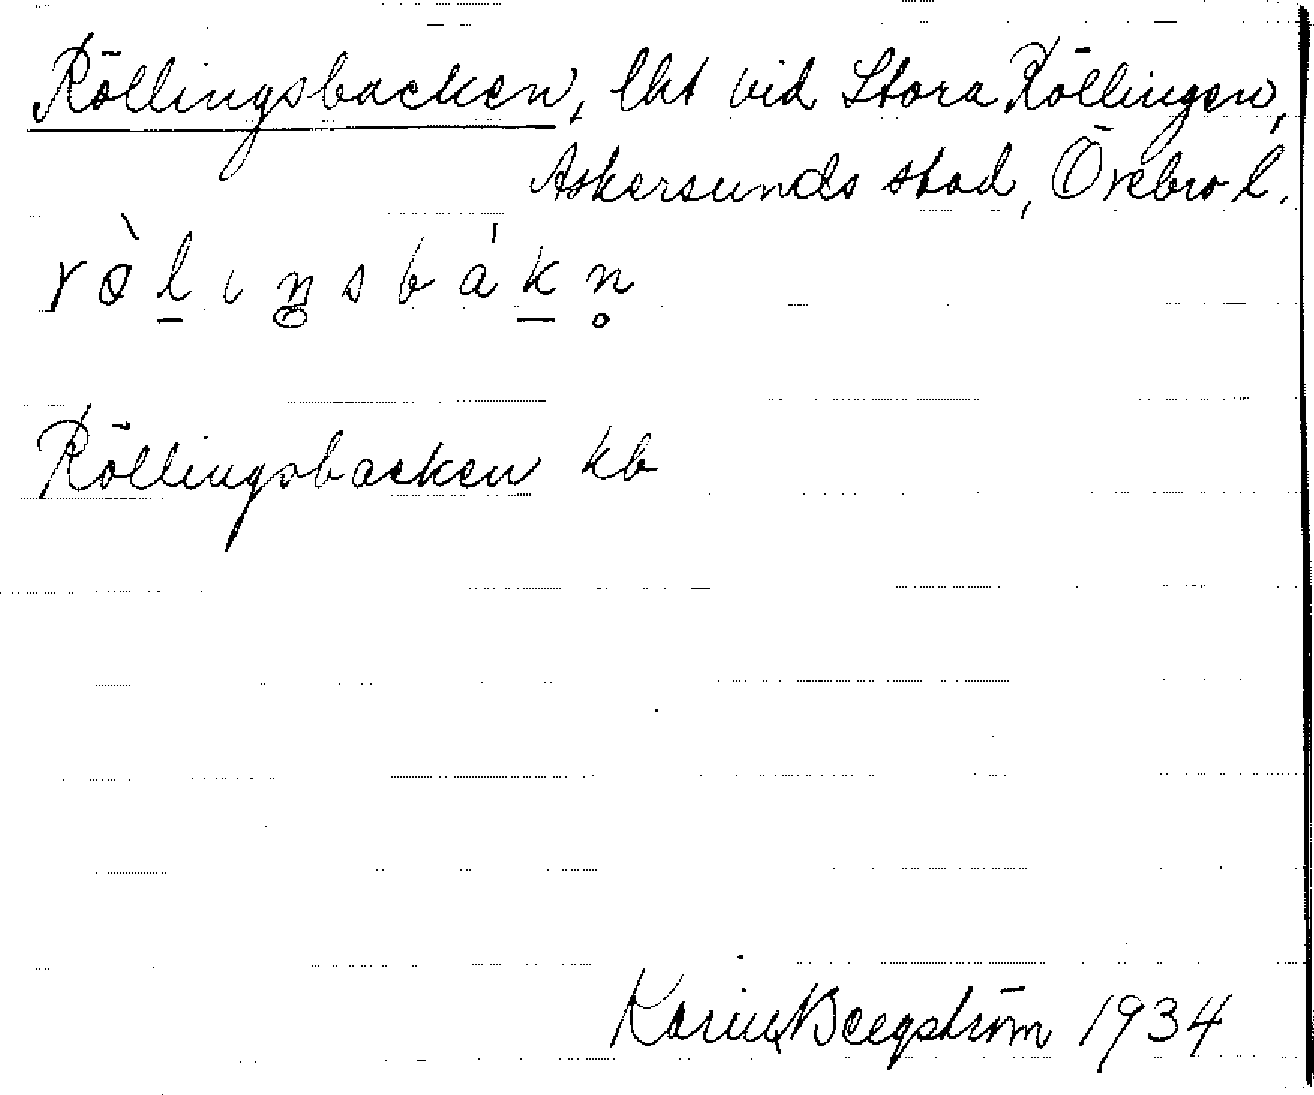 Röllingsbacken, lht vid Stora Röllingen,
Askersunds stad, Örebro l.
Röllingsbacken kb
Karin Bergström 1934